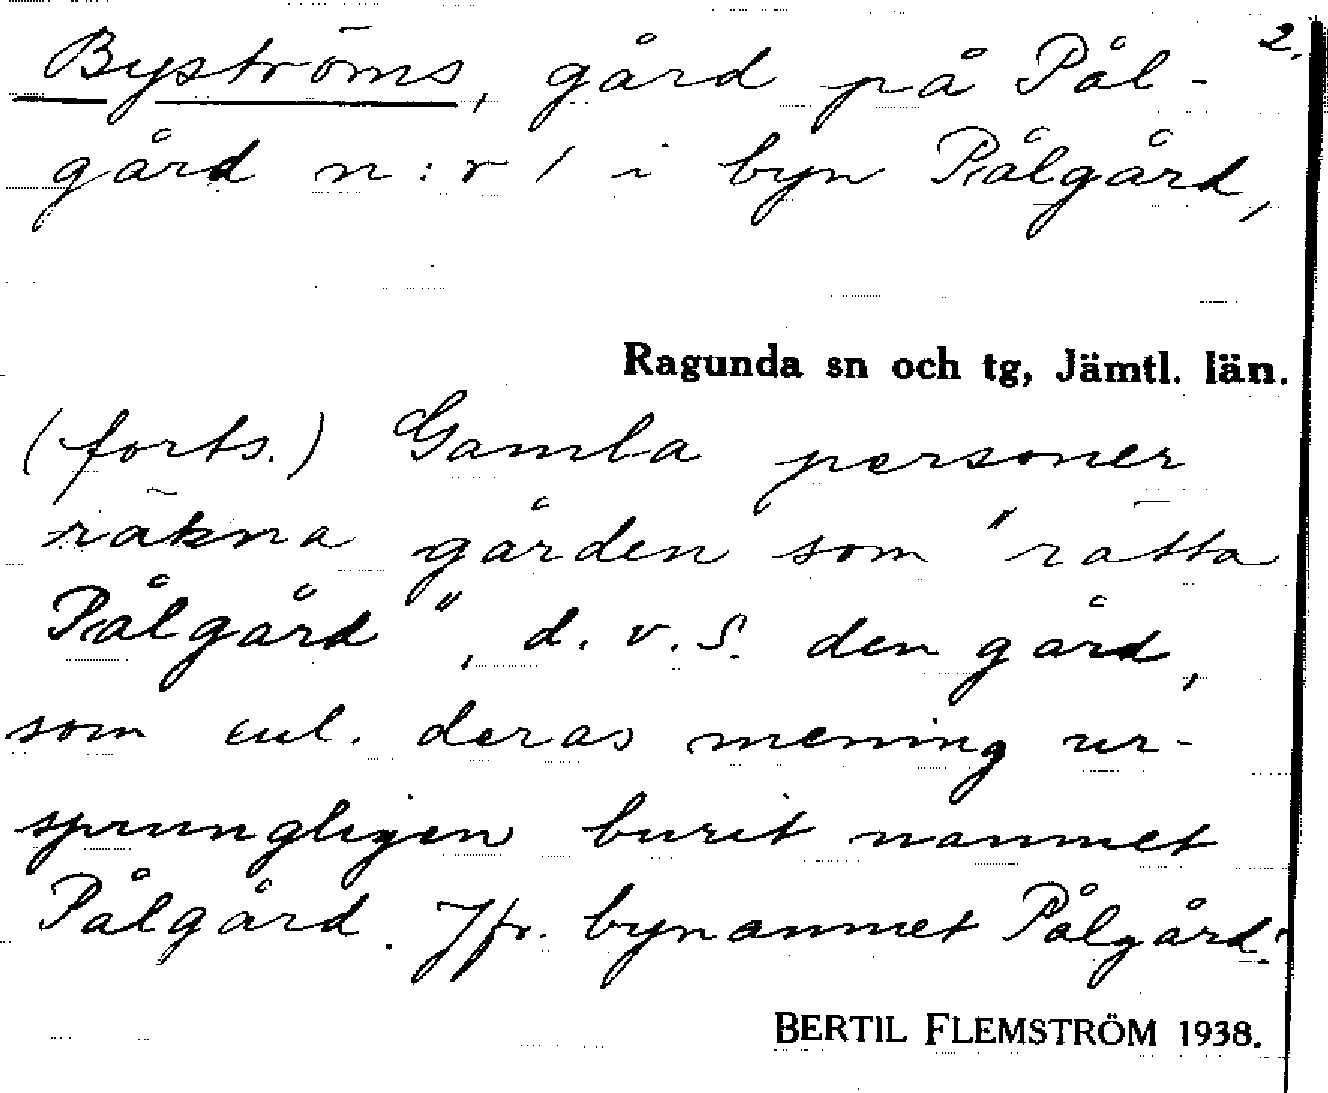 2.
Byströms, gård på Pål-
gård n:r 1 i byn Pålgård,
Ragunda sn och tg, Jämtl. län.
(forts.) Gamla personer
räkna gården som "rätta
Pålgård", d.v.s. den gård,
som enl. deras mening ur-
sprungligen burit namnet
Pålgård. Jfr. bynamnet Pålgård.
BERTIL FLEMSTRÖM 1938.